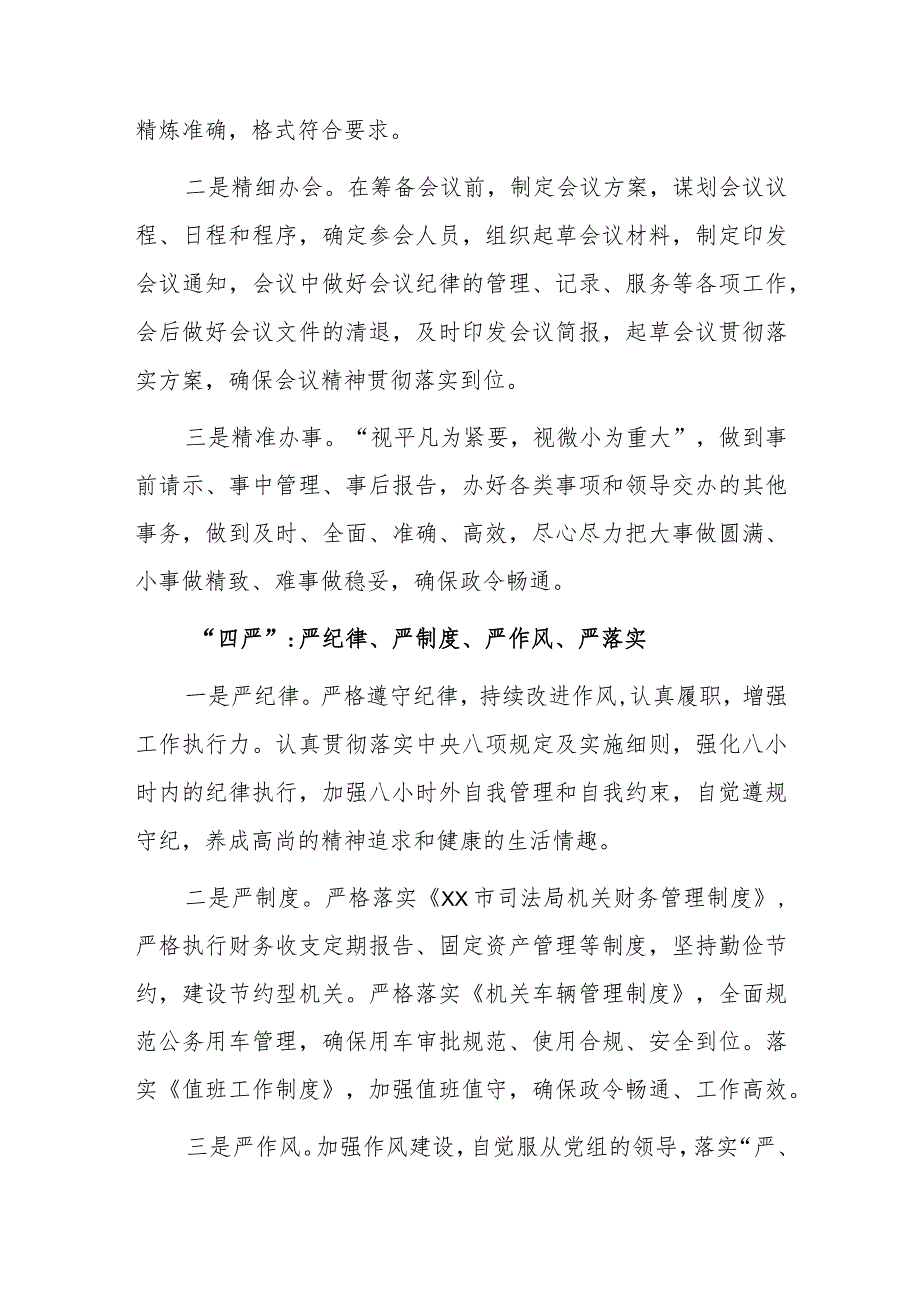 精炼准确，格式符合要求。
二是精细办会。在筹备会议前，制定会议方案，谋划会议议
程、日程和程序，确定参会人员，组织起草会议材料，制定印发
会议通知，会议中做好会议纪律的管理、记录、服务等各项工作，
会后做好会议文件的清退，及时印发会议简报，起草会议贯彻落
实方案，确保会议精神贯彻落实到位。
三是精准办事。“视平凡为紧要，视微小为重大”，做到事
前请示、事中管理、事后报告，办好各类事项和领导交办的其他
事务，做到及时、全面、准确、高效，尽心尽力把大事做圆满、
小事做精致、难事做稳妥，确保政令畅通。
“四严”:严纪律、严制度、严作风、严落实
一是严纪律。严格遵守纪律，持续改进作风,认真履职，增强
工作执行力。认真贯彻落实中央八项规定及实施细则，强化八小
时内的纪律执行，加强八小时外自我管理和自我约束，自觉遵规
守纪，养成高尚的精神追求和健康的生活情趣。
二是严制度。严格落实《XX市司法局机关财务管理制度》,
严格执行财务收支定期报告、固定资产管理等制度，坚持勤俭节
约，建设节约型机关。严格落实《机关车辆管理制度》，全面规
范公务用车管理，确保用车审批规范、使用合规、安全到位。落
实《值班工作制度》，加强值班值守，确保政令畅通、工作高效。
三是严作风。加强作风建设,自觉服从党组的领导,落实“严、